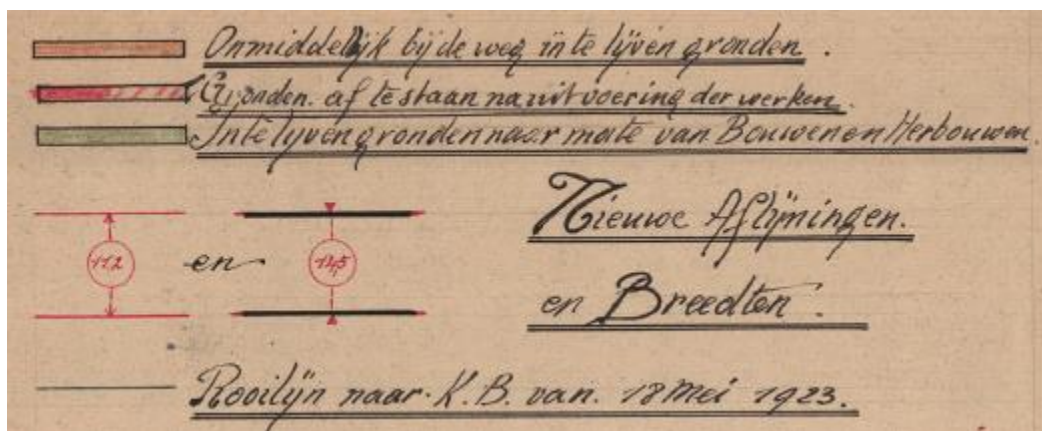 Onmiddelijk bij de weg in te lijven gronden.
Gronden af te staan na uitvoering der werken.
In te lijven gronden naar mate van Bouwen en Herbouwen.
11,2 en 12,5
Nieuwe Aflijningen.
en Breedten.
Rooilijn naar K.B. van 18 Mei 1923.